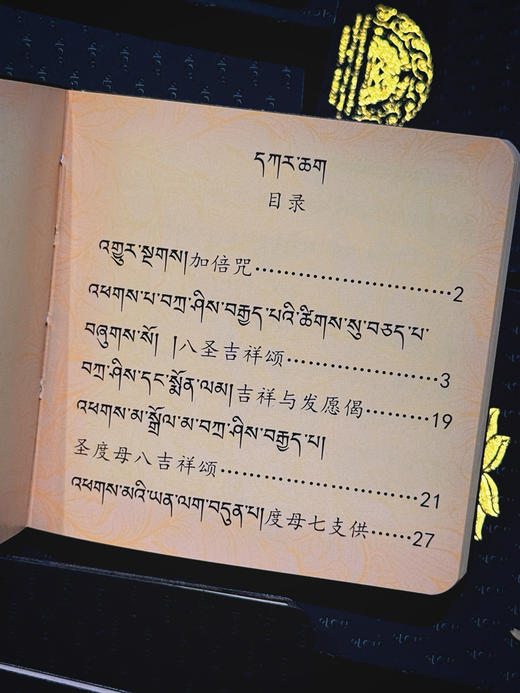 དཀར་ཆག
目录
འགྱུར་སྔགས།加倍咒……………………2
འཕགས་པ་བཀྲ་ཤིས་བརྒྱད་པའི་ཚིགས་སུ་བཅད་པ་
བཞུགས་སོ། །八圣吉祥颂………………3
བཀྲ་ཤིས་དང་སྨོན་ལམ།吉祥与发愿偈………19
འཕགས་མ་སྒྲོལ་མ་བཀྲ་ཤིས་བརྒྱད་པ།
圣度母八吉祥颂……………………21
འཕགས་མའི་ཡན་ལག་བདུན་པ།度母七支供……27